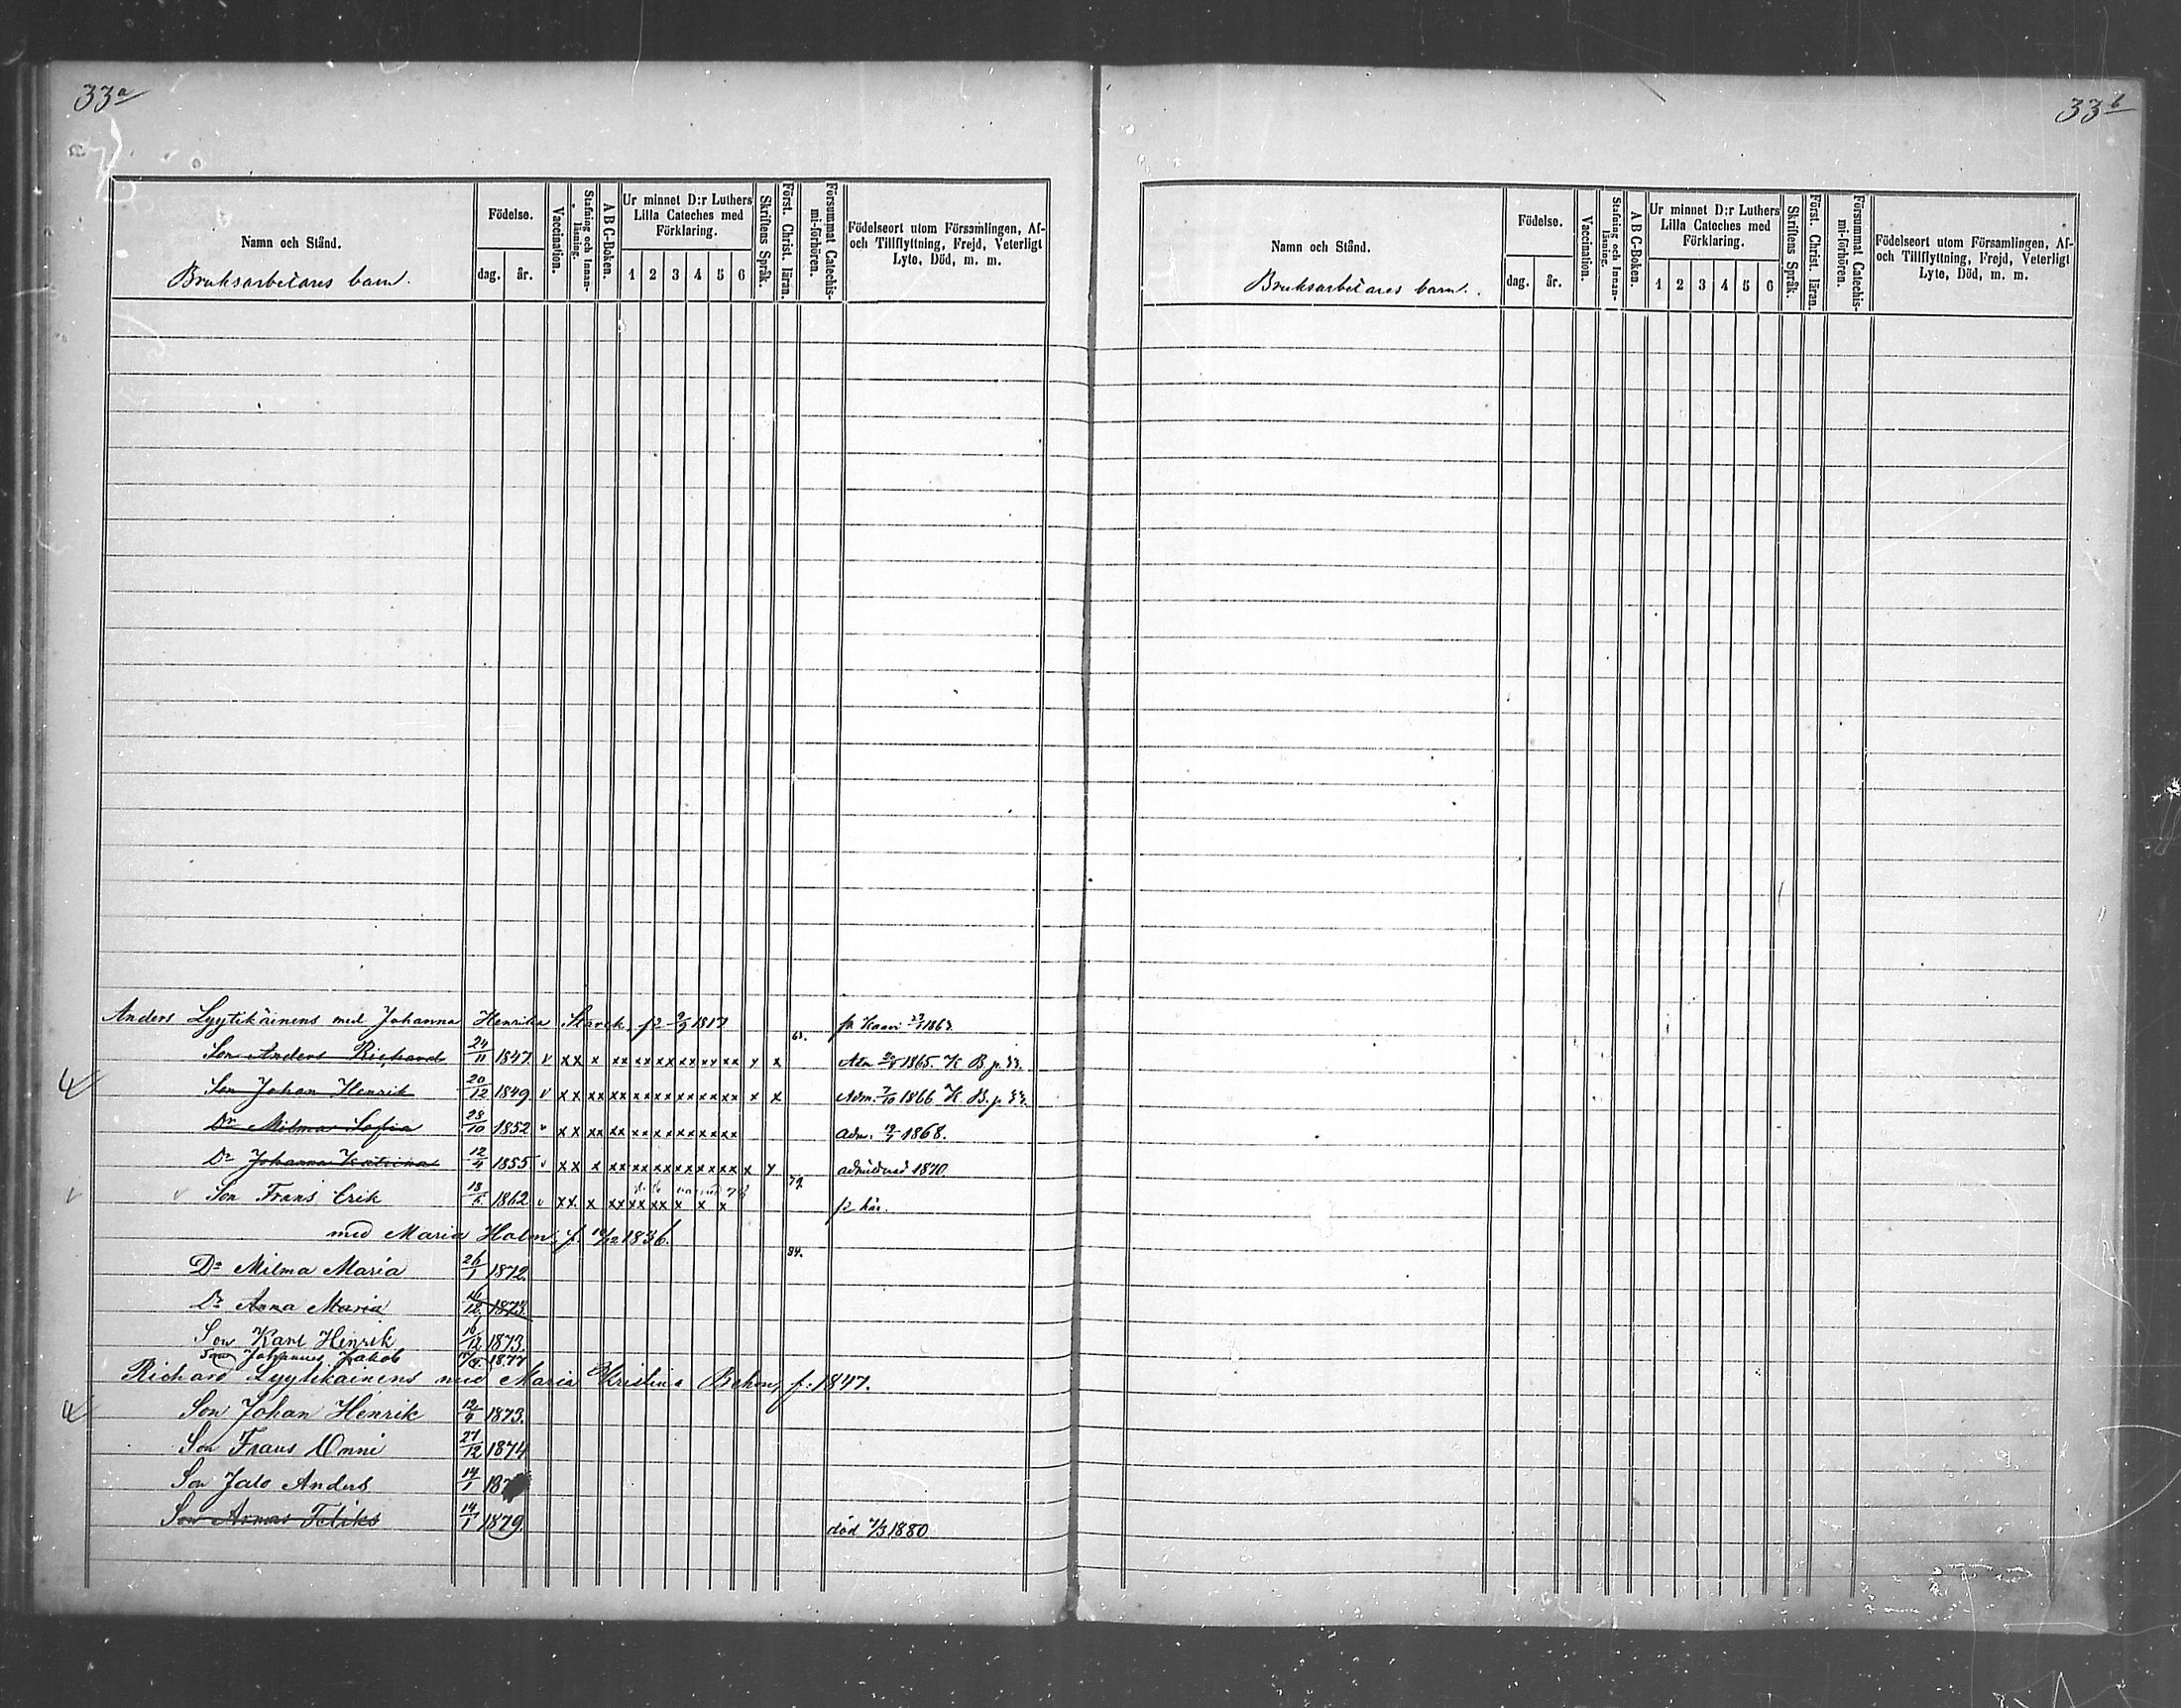 33a
Namn och Stånd.
Bruksarbetares barn.
Födelse.
dag. år.
Vaccination.
Stafning och Innan-läsning.
A B C-Boken.
Ur minnet D:r Luthers
Lilla Cateches med
Förklaring.
1 2 3 4 5 6
Skriftens Språk.
Först. Christ. läran.
Försummat Catechis-mi-förhören.
Födelseort utom Församlingen, Af-
och Tillflyttning, Frejd, Veterligt
Lyte, Död, m. m.
Anders Lyytikäinens med Johanna Henrika Starck f? 1817 fr Kaavi 1863
Son Anders Richard 24/11 1847 v xx x xx xx xx xx xx xx x x 1865. K B p. 33.
Son Johan Henrik 20/12 1849 v xx xx xx xx xx xx xx xx x x Adm. 7/10 1866 K B. p. 33.
Dr Milma Sofia 28/10 1852 v xx xx xx xx xx xx xx xx adm. 1868.
Dr Johanna Katrina 12/4 1855 v xx x xx xx xx xx xx xx x x admitterad 1870
Son Frans Erik 18/5 1862 v xx x xx xx xx x x x 79. f? här.
med Maria Holm f. 1836. 84.
Dr Milma Maria 26/1 1872
Dr Anna Maria 16/12 1873
Son Karl Henrik 16/12 1873.
Son Johannes Jakob 1877
Richard Lyytikäinens med Maria Kristina f: 1847.
Son Johan Henrik 12/9 1873.
Son Frans Onni 27/12 1874
Son Jalo Anders 14/1 187
Son Armas Feliks 14/1 1879. död 1/3 1880
33b
Namn och Stånd.
Bruksarbetares barn.
Födelse.
dag. år.
Vaccination.
Stafning och Innan-läsning.
A B C-Boken.
Ur minnet D:r Luthers
Lilla Cateches med
Förklaring.
1 2 3 4 5 6
Skriftens Språk.
Först. Christ. läran.
Försummat Catechis-mi-förhören.
Födelseort utom Församlingen, Af-
och Tillflyttning, Frejd, Veterligt
Lyte, Död, m. m.